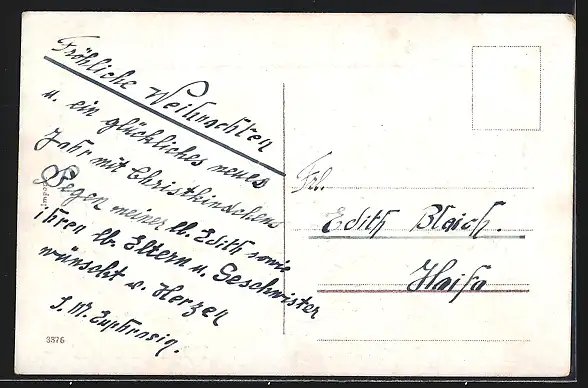 Fröhliche Weihnachten
u. ein glückliches neues
Jahr mit Christkindchens
Segen meiner lb. Edith sowie
ihren lb. Eltern u. Geschwister
wünscht v. Herzen
S. M. Euphrosin.
3376
Frl.
Edith Blaich.
Haifa